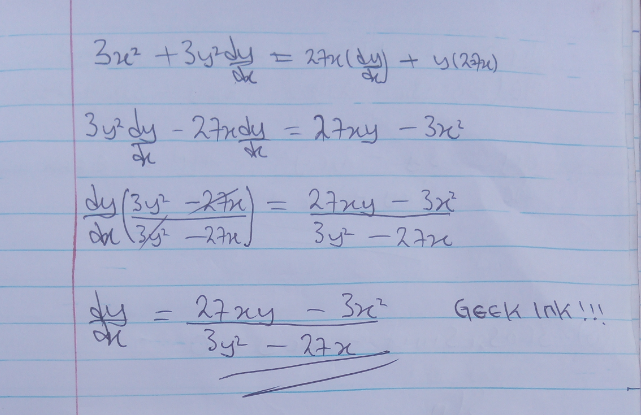 3x² + 3y² dy/dx = 27x(dy/dx) + y(27x)
3y² dy/dx - 27x dy/dx = 27xy - 3x²
dy/dx (3y² - 27x / 3y² - 27x) = 27xy - 3x² / 3y² - 27x
dy/dx = 27xy - 3x² / 3y² - 27x GEEK INK!!!